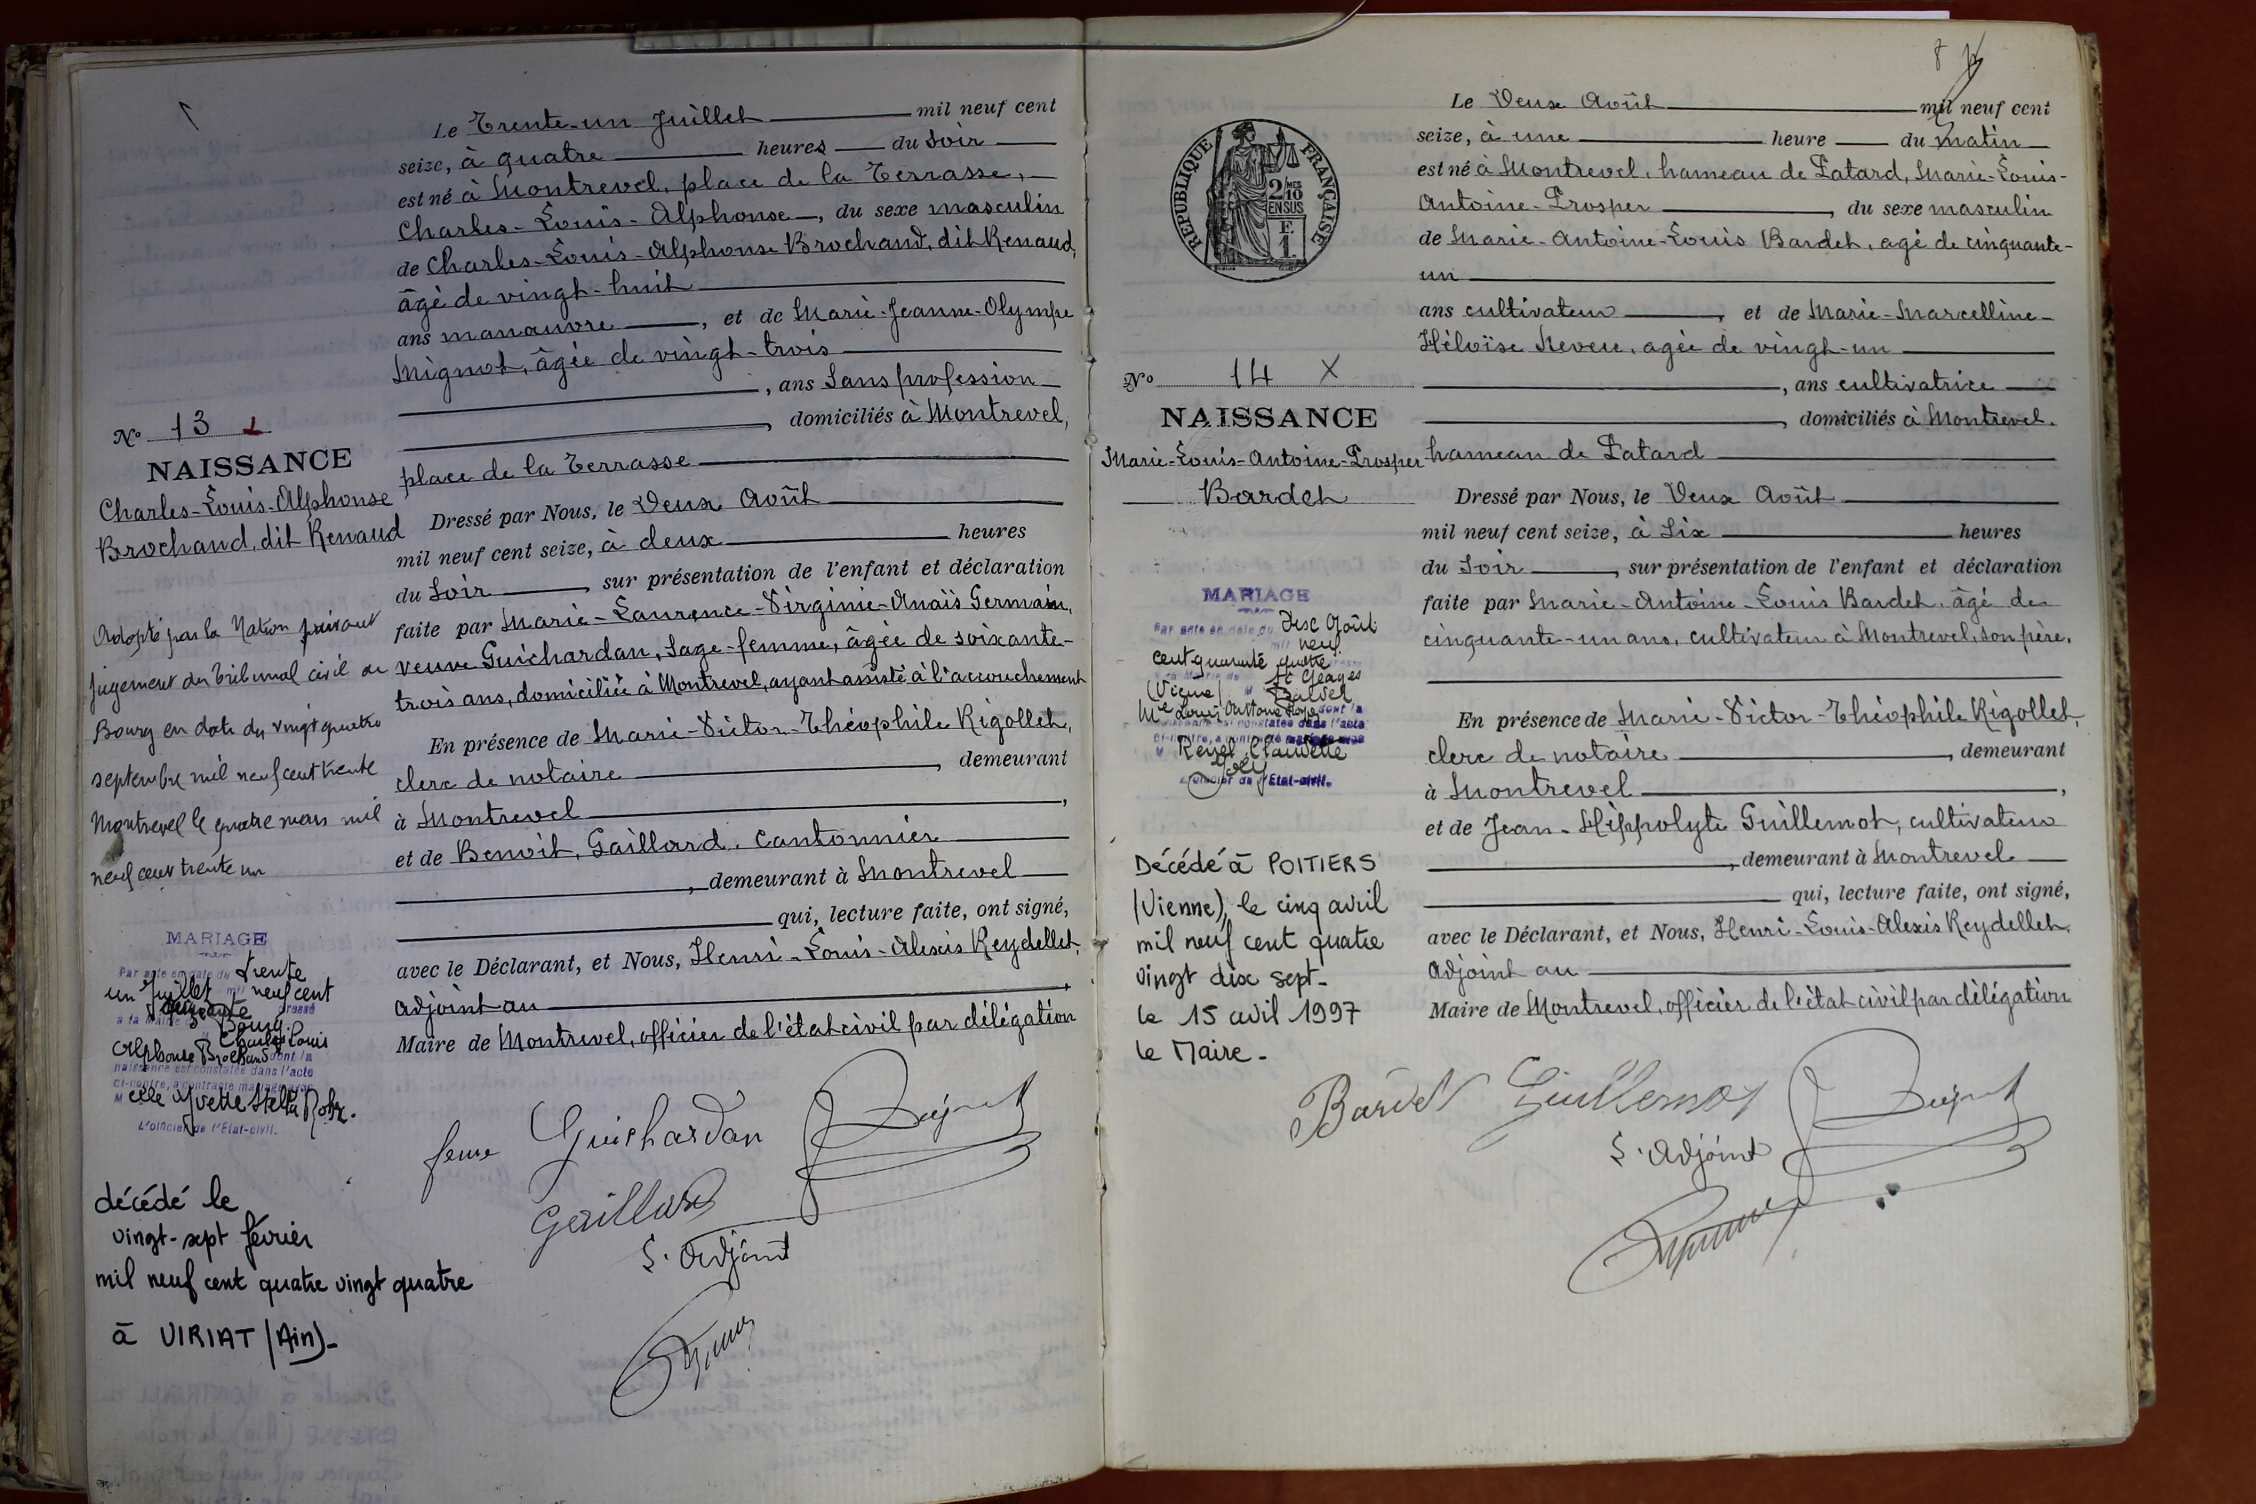 Le Trente-un Juillet mil neuf cent
seize, à quatre heures du Soir
est né à Montrevel, place de la Terrasse,
Charles-Louis-Alphonse, du sexe masculin
de Charles-Louis-Alphonse Brochand, dit Renaud,
âgé de vingt-huit
ans manœuvre, et de Marie-Jeanne-Olympe
Mignot, âgée de vingt-trois
, ans Sans profession
, domiciliés à Montrevel,
place de la Terrasse
Dressé par Nous, le Deux Août
mil neuf cent seize, à deux heures
du Soir, sur présentation de l'enfant et déclaration
faite par Marie-Laurence-Virginie-Anaïs Germain,
veuve Guichardan, Sage-femme, âgée de soixante-
trois ans, domiciliée à Montrevel, ayant assisté à l'accouchement
En présence de Marie-Victor-Théophile Rigollet,
clerc de notaire, demeurant
à Montrevel,
et de Benoit, Gaillard, Cantonnier
, demeurant à Montrevel
qui, lecture faite, ont signé,
avec le Déclarant, et Nous, Henri-Louis-Alexis Reydellet,
adjoint au
Maire de Montrevel, officier de l'état civil par délégation
Guichardan
Gaillard
L'Adjoint
No 13
NAISSANCE
Charles-Louis-Alphonse
Brochand, dit Renaud
Adopté par la Nation suivant
jugement du Tribunal civil de
Bourg en date du vingt quatre
septembre mil neuf cent trente
Montrevel le quatre mars mil
neuf cent trente un
MARIAGE
Par acte en date du trente
un Juillet mil neuf cent
dressé
à la mairie Bourg
Charles Louis
Alphonse Brochand dont la
naissance est constatée dans l'acte
ci-contre, a contracté mariage avec
Melle Yvette Stella
L'officier de l'Etat-civil.
décédé le
vingt-sept février
mil neuf cent quatre vingt quatre
à VIRIAT (Ain)-
8
Le Deux Août mil neuf cent
seize, à une heure du matin
est né à Montrevel, hameau de Patard, Marie-Louis-
Antoine-Prosper, du sexe masculin
de Marie-Antoine-Louis Bardet, agé de cinquante-
un
ans cultivateur, et de Marie-Marcelline-
Héloïse Neveu, agée de vingt-un
, ans cultivatrice
, domiciliés à Montrevel.
hameau de Patard
Dressé par Nous, le Deux Août
mil neuf cent seize, à Six heures
du Soir, sur présentation de l'enfant et déclaration
faite par Marie-Antoine-Louis Bardet, âgé de
cinquante-un ans, cultivateur à Montrevel, son père.
En présence de Marie-Victor-Théophile Rigollet,
clerc de notaire, demeurant
à Montrevel,
et de Jean-Hippolyte Guillemot, cultivateur
, demeurant à Montrevel
qui, lecture faite, ont signé,
avec le Déclarant, et Nous, Henri-Louis-Alexis Reydellet,
Adjoint au
Maire de Montrevel, officier de l'état civil par délégation
Bardet Guillemot
L'Adjoint
RÉPUBLIQUE FRANÇAISE
2/10 MES
EN SUS
F.
1.
No 14 X
NAISSANCE
Marie-Louis-Antoine-Prosper
Bardet
MARIAGE
Par acte en date du dix Août
mil neuf
cent quarante quatre
St Georges
(Vienne) M Bardet
Louis Antoine dont la
naissance est constatée dans l'acte
ci-contre, a contracté mariage avec
M Claudette
L'officier de l'Etat-civil.
Décédé à POITIERS
(Vienne), le cinq avril
mil neuf cent quatre
vingt dix sept-
le 15 avril 1997
le Maire-